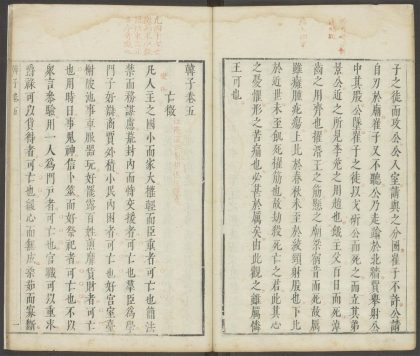 子之徒而攻公公入室請與之分國崔子不許公請
自刃於廟崔子又不聽公乃走踰於北牆賈舉射公
中其股公墜崔子之徒以戈斫公而死之而立其弟
景公近之所見李兌之用趙也餓主父百日而死淖
齒之用齊也擢湣王之筋懸之廟梁宿昔而死故厲
雖癰腫疕瘍上比於春秋未至於絞頸射股也下比
於近世未至餓死擢筋也故劫殺死亡之君此其心
之憂懼形之苦痛也必甚於厲矣由此觀之雖厲憐
王可也
韓子卷五
亡徵
凡人主之國小而家大權輕而臣重者可亡也簡法
禁而務謀慮荒封內而恃交援者可亡也羣臣為學
門子好辯商賈外積小民內困者可亡也好宮室臺
榭陂池事車服器玩好罷露百姓煎靡貨財者可亡
也用時日事鬼神信卜筮而好祭祀者可亡也不以
衆言參驗用一人為門戶者可亡也官職可以重求
爵祿可以貨得者可亡也緩心而無成柔茹而寡斷
韓子卷五